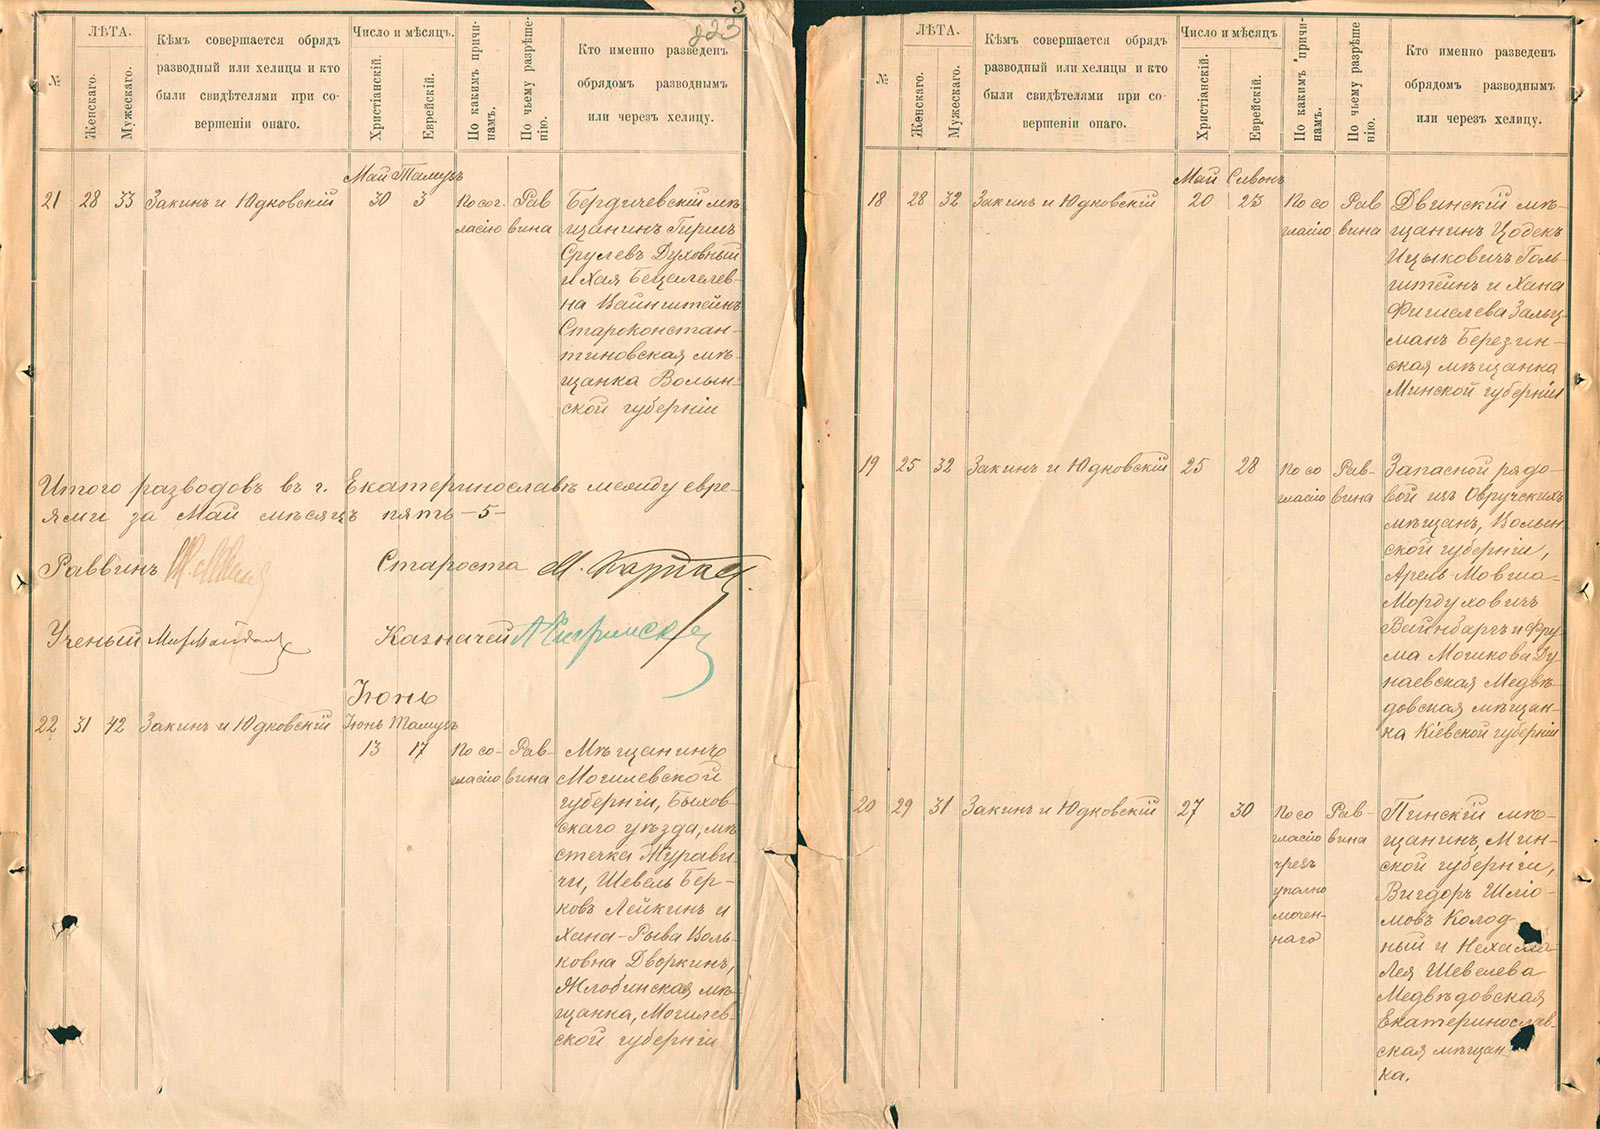 223
№
ЛѢТА.
Женскаго.
Мужескаго.
Кѣмъ совершается обрядъ
разводный или хелицы и кто
были свидѣтелями при со-
вершеніи онаго.
Число и мѣсяцъ.
Христіанскій.
Еврейскій.
По какимъ причи-
намъ.
По чьему разрѣше-
нію.
Кто именно разведенъ
обрядомъ разводнымъ
или черезъ хелицу.
Май Тамузъ
21 28 33 Закинъ и Юдковскій 30 3
По сог-
ласію
Рав
вина
Бердичевскій мѣ-
щанинъ Гершъ
Срулевъ Духовный
и Хая Бецалелев-
на Вайнштейнъ
Староконстан-
тиновская мѣ-
щанка Волын-
ской губерніи
Итого разводовъ въ г. Екатеринославѣ между евре-
ями за Май мѣсяцъ пять -5-
Раввинъ
Староста М. Карпас
Ученый
Казначей
Іюнь
22 31 42 Закинъ и Юдковскій Іюнь Тамузъ
13 17
По со-
гласію
Рав-
вина
Мѣщанинъ
Могилевской
губерніи, Быхов-
скаго уѣзда, мѣ
стечка Журави-
чи, Шевель Бер-
ковъ Лейкинъ и
Хана-Рыва Воль-
ковна Дворкинъ,
Жлобинская мѣ-
щанка, Могилев-
ской губерніи
№
ЛѢТА.
Женскаго.
Мужескаго.
Кѣмъ совершается обрядъ
разводный или хелицы и кто
были свидѣтелями при со
вершеніи онаго.
Число и мѣсяцъ
Христіанскій.
Еврейскій.
По какимъ причи-
намъ.
По чьему разрѣше
нію.
Кто именно разведенъ
обрядомъ разводнымъ
или черезъ хелицу.
Май Сивонъ
18 28 32 Закинъ и Юдковскій 20 23
По со
гласію
Рав
вина
Двинскій мѣ-
щанинъ Цодекъ
Ицыковичъ Голь
штейнъ и Хана
Фишелева Зальц-
манъ Березин-
ская мѣщанка
Минской губерніи
19 25 32 Закинъ и Юдковскій 25 28
По со
гласію
Рав-
вина
Запасной рядо-
вой изъ Овручскихъ
мѣщан, Волын
ской губерніи,
Арель-Мовша-
Мордуховичъ
Вайнбаргъ и Фру-
ма Мошкова Ду-
наевская Медвѣ
довская мѣщан-
ка Кіевской губерніи
20 29 31 Закинъ и Юдковскій 27 30
По со
гласію
чрезъ
уполно
мочен-
наго
Рав-
вина
Пинскій мѣ-
щанинъ, Мин-
ской губерніи,
Вигдоръ Шліо-
мовъ Колод-
ный и Нехама
Лея Шевелева
Медвѣдовская
Екатеринослав-
ская мѣщан-
ка.